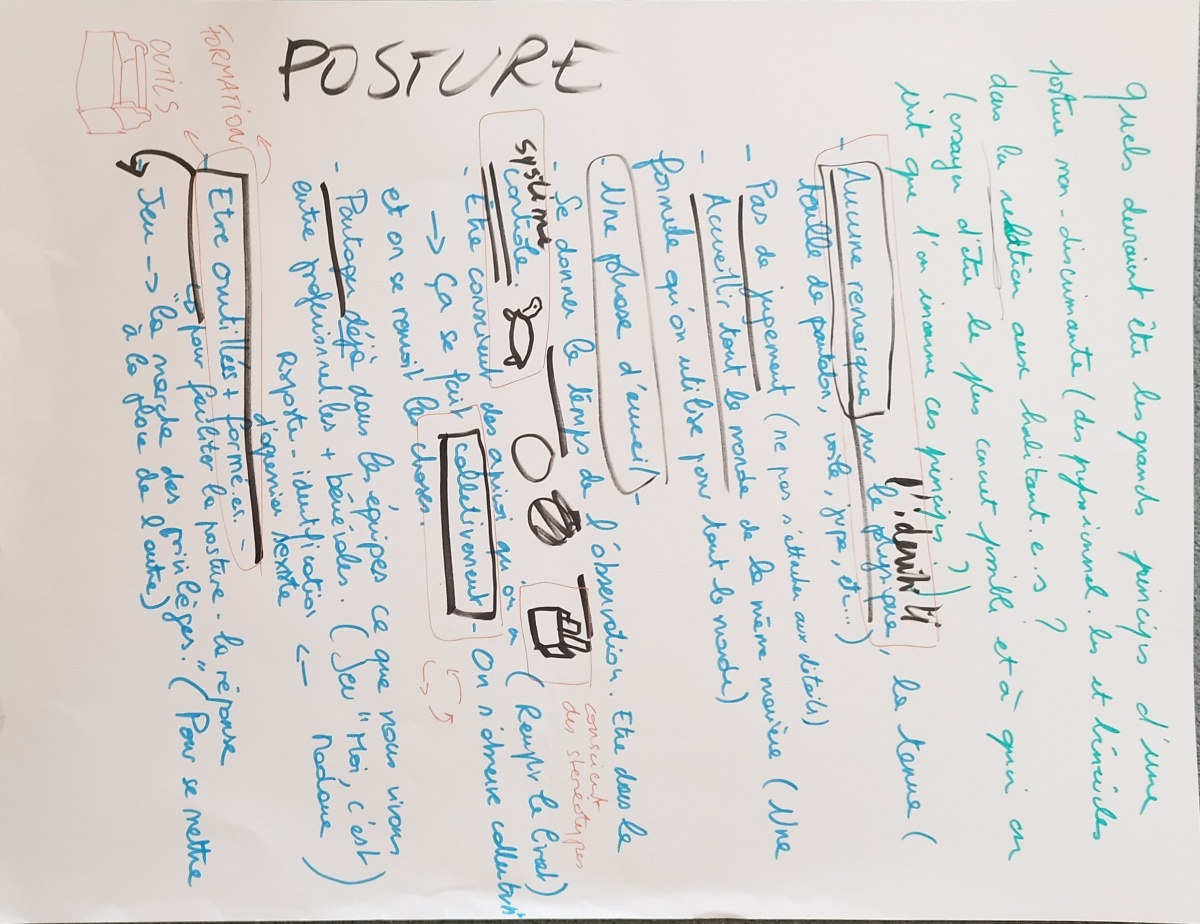 POSTURE
Quels devraient être les grands principes d'une
posture non-discriminante (des professionnel.les et bénévoles
dans la relation aux habitant.e.s ?
(essayer d'être le plus concret possible et à quoi on
voit que l'on incarne ces principes ?)
l'identité
- Aucune remarque sur le physique, la tenue (
taille de pantalon, voile, jupe, etc...)
- Pas de jugement (ne pas s'attacher aux détails)
- Accueillir tout le monde de la même manière (Une
formule qu'on utilise pour tout le monde)
- Une phase d'accueil -
Se donner le temps de l'observation. Etre dans le
contrôle.
système
conscient
des stéréotypes
- Etre conscient des a priori qu'on a (Remplir le livret)
→ ça se fait collectivement - On s'observe collectivt
et on se renvoit les choses.
- Partager déjà dans les équipes ce que nous vivons
entre professionnel.les + bénévoles. (Jeu "Moi, c'est
Madame)
Riposte - identification ←
d'oppression
- Etre outillé.es + formé.es -
pour faciliter la posture - la réponse
Jeu → "la marche des privilèges." (Pour se mettre
à la place de l'autre)
FORMATION
OUTILS